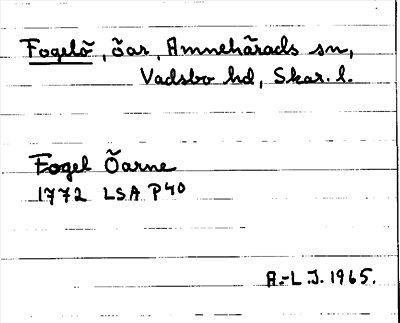 Fogelö, öar, Amnehärads sn,
Vadsbo hd, Skar. l.
Fogel Öarne
1772 LSA P40
A.-L J. 1965.